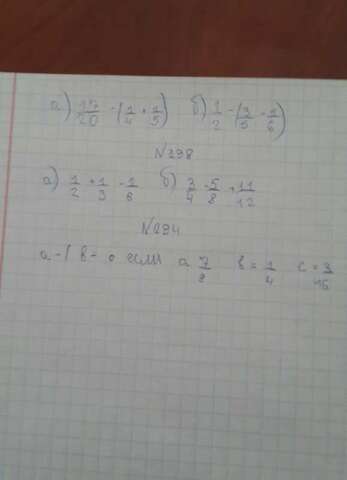 а) 17/20 - (1/4 + 1/5) б) 1/2 - (3/5 - 1/6)
№298
а) 1/2 + 1/3 - 1/6 б) 3/4 - 5/8 + 11/12
№294
а - ( в - с если а 7/8 в = 1/4 с = 3/16